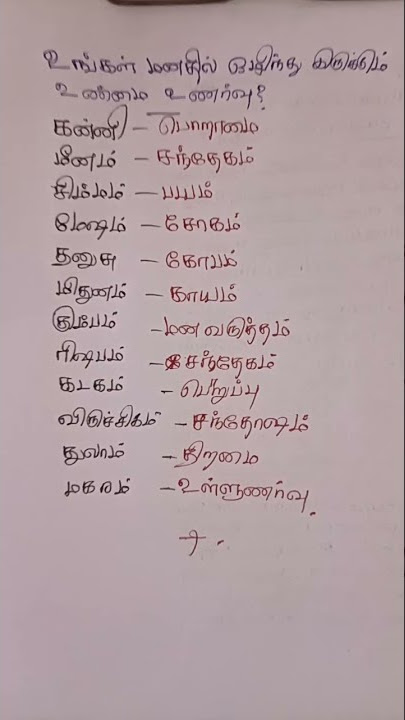 உங்கள் மனதில் ஒழிந்து இருக்கும்
உண்மை உணர்வு?
கன்னி - பொறாமை
மீனம் - சந்தேகம்
சிம்மம் - பயம்
மேஷம் - சோகம்
தனுசு - கோபம்
மிதுனம் - காயம்
கும்பம் - மன வருத்தம்
ரிஷபம் - சந்தேகம்
கடகம் - வெறுப்பு
விருச்சிகம் - சந்தோஷம்
துலாம் - திறமை
மகரம் - உள்ளுணர்வு.